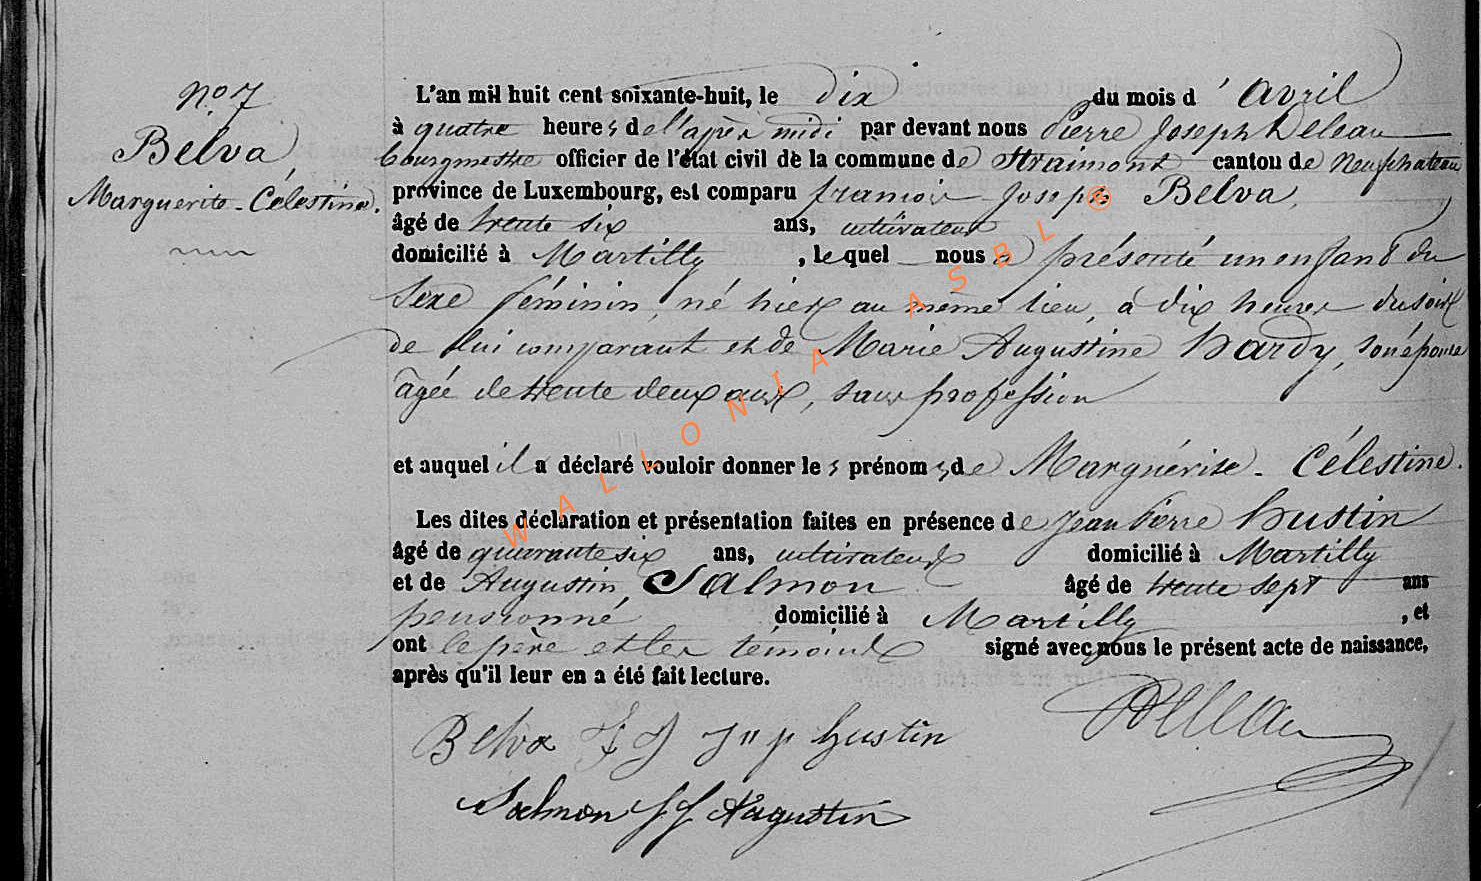 no 7
Belva
Marguerite-Célestine.
L'an mil huit cent soixante-huit, le dix du mois d'avril
à quatre heures de l'après midi par devant nous Pierre Joseph Deleau
bourgmestre officier de l'état civil de la commune de Straimont canton de Neufchateau
province de Luxembourg, est comparu françois Joseph Belva,
âgé de trente six ans, cultivateur
domicilié à Martilly, lequel nous a présenté un enfant du
sexe féminin, né hier au même lieu, à dix heures du soir
de lui comparant et de Marie Augustine Hardy, son épouse
âgée de trente deux ans, sans profession
et auquel il a déclaré vouloir donner les prénoms de Marguérite-Célestine.
Les dites déclaration et présentation faites en présence de Jean Pierre Hustin
âgé de quarante six ans, cultivateur domicilié à Martilly
et de Augustin Salmon âgé de trente sept ans
pensionné domicilié à Martilly, et
ont le père et les témoins signé avec nous le présent acte de naissance,
après qu'il leur en a été fait lecture.
Belva F J J p hustin
Deleau
Salmon Augustin
WALLONIA ASBL ©